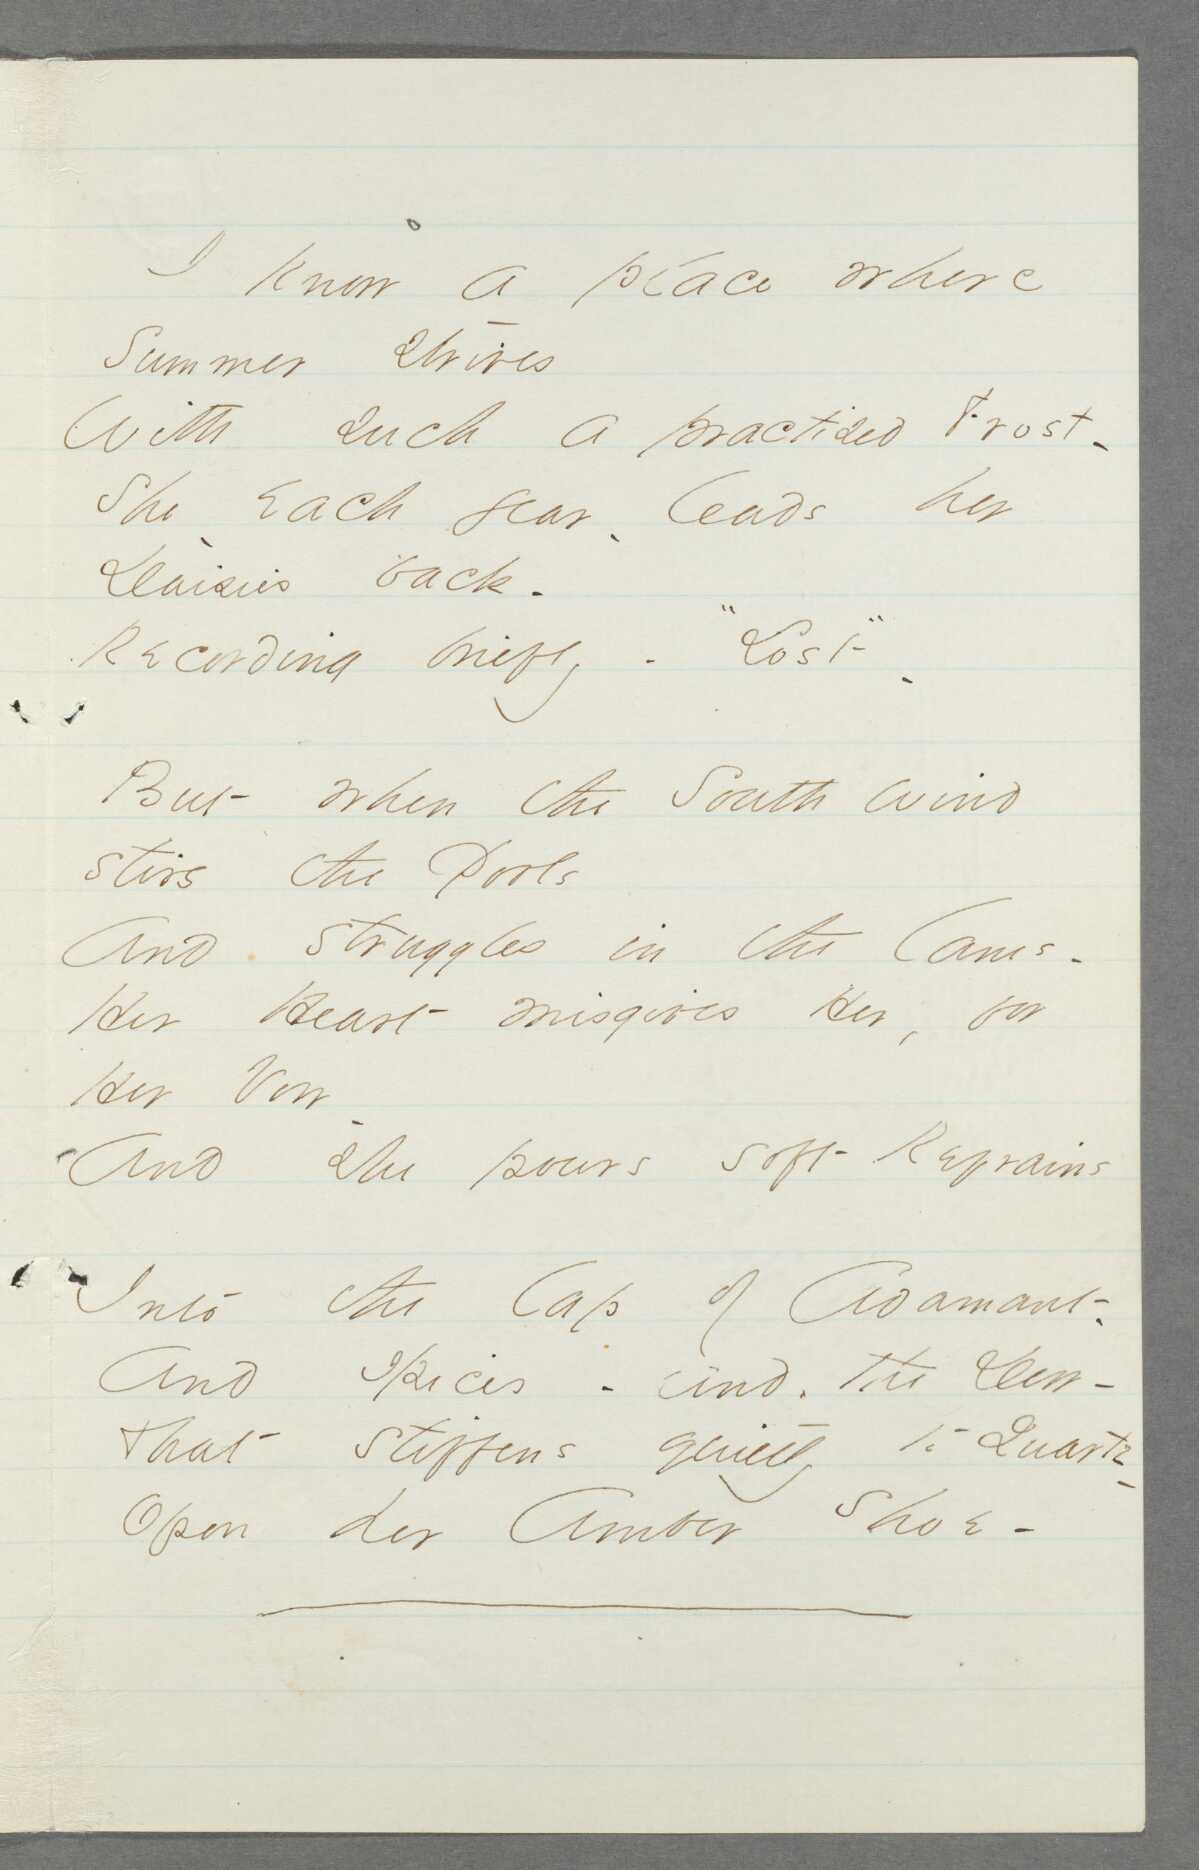 I know a place where
Summer strives
With such a practised Frost -
She Each year - leads her
Daisies back -
Recording briefly - "Lost" -
But when the South Wind
stirs the Pools
And struggles in the lanes -
Her Heart misgives Her, for
Her Vow -
And she pours soft Refrains
Into the lap of Adamant -
And spices - and the Dew -
That stiffens quietly to Quartz -
Opon her Amber Shoe -